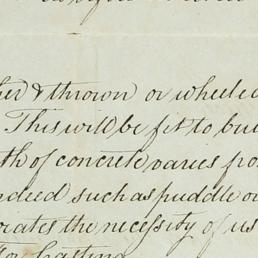 her & thrown or wheeled
This will be fit to bui
th of concrete varies fro
ndeed such as puddle or
orates the necessity of us